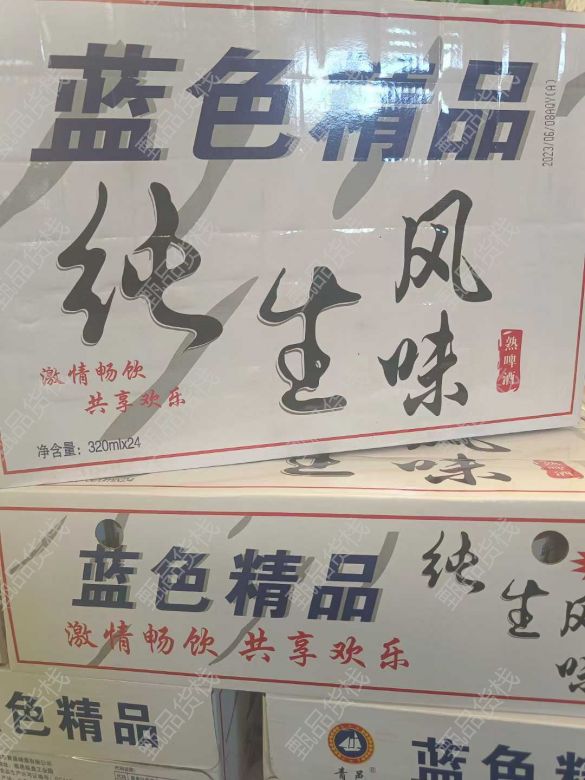 蓝色精品
2023/06/08AQY(A)
纯生风味
熟啤酒
激情畅饮
共享欢乐
净含量：320mlx24
风味
蓝色精品
纯生风味
激情畅饮 共享欢乐
色精品
青品
蓝色精
甄品货栈